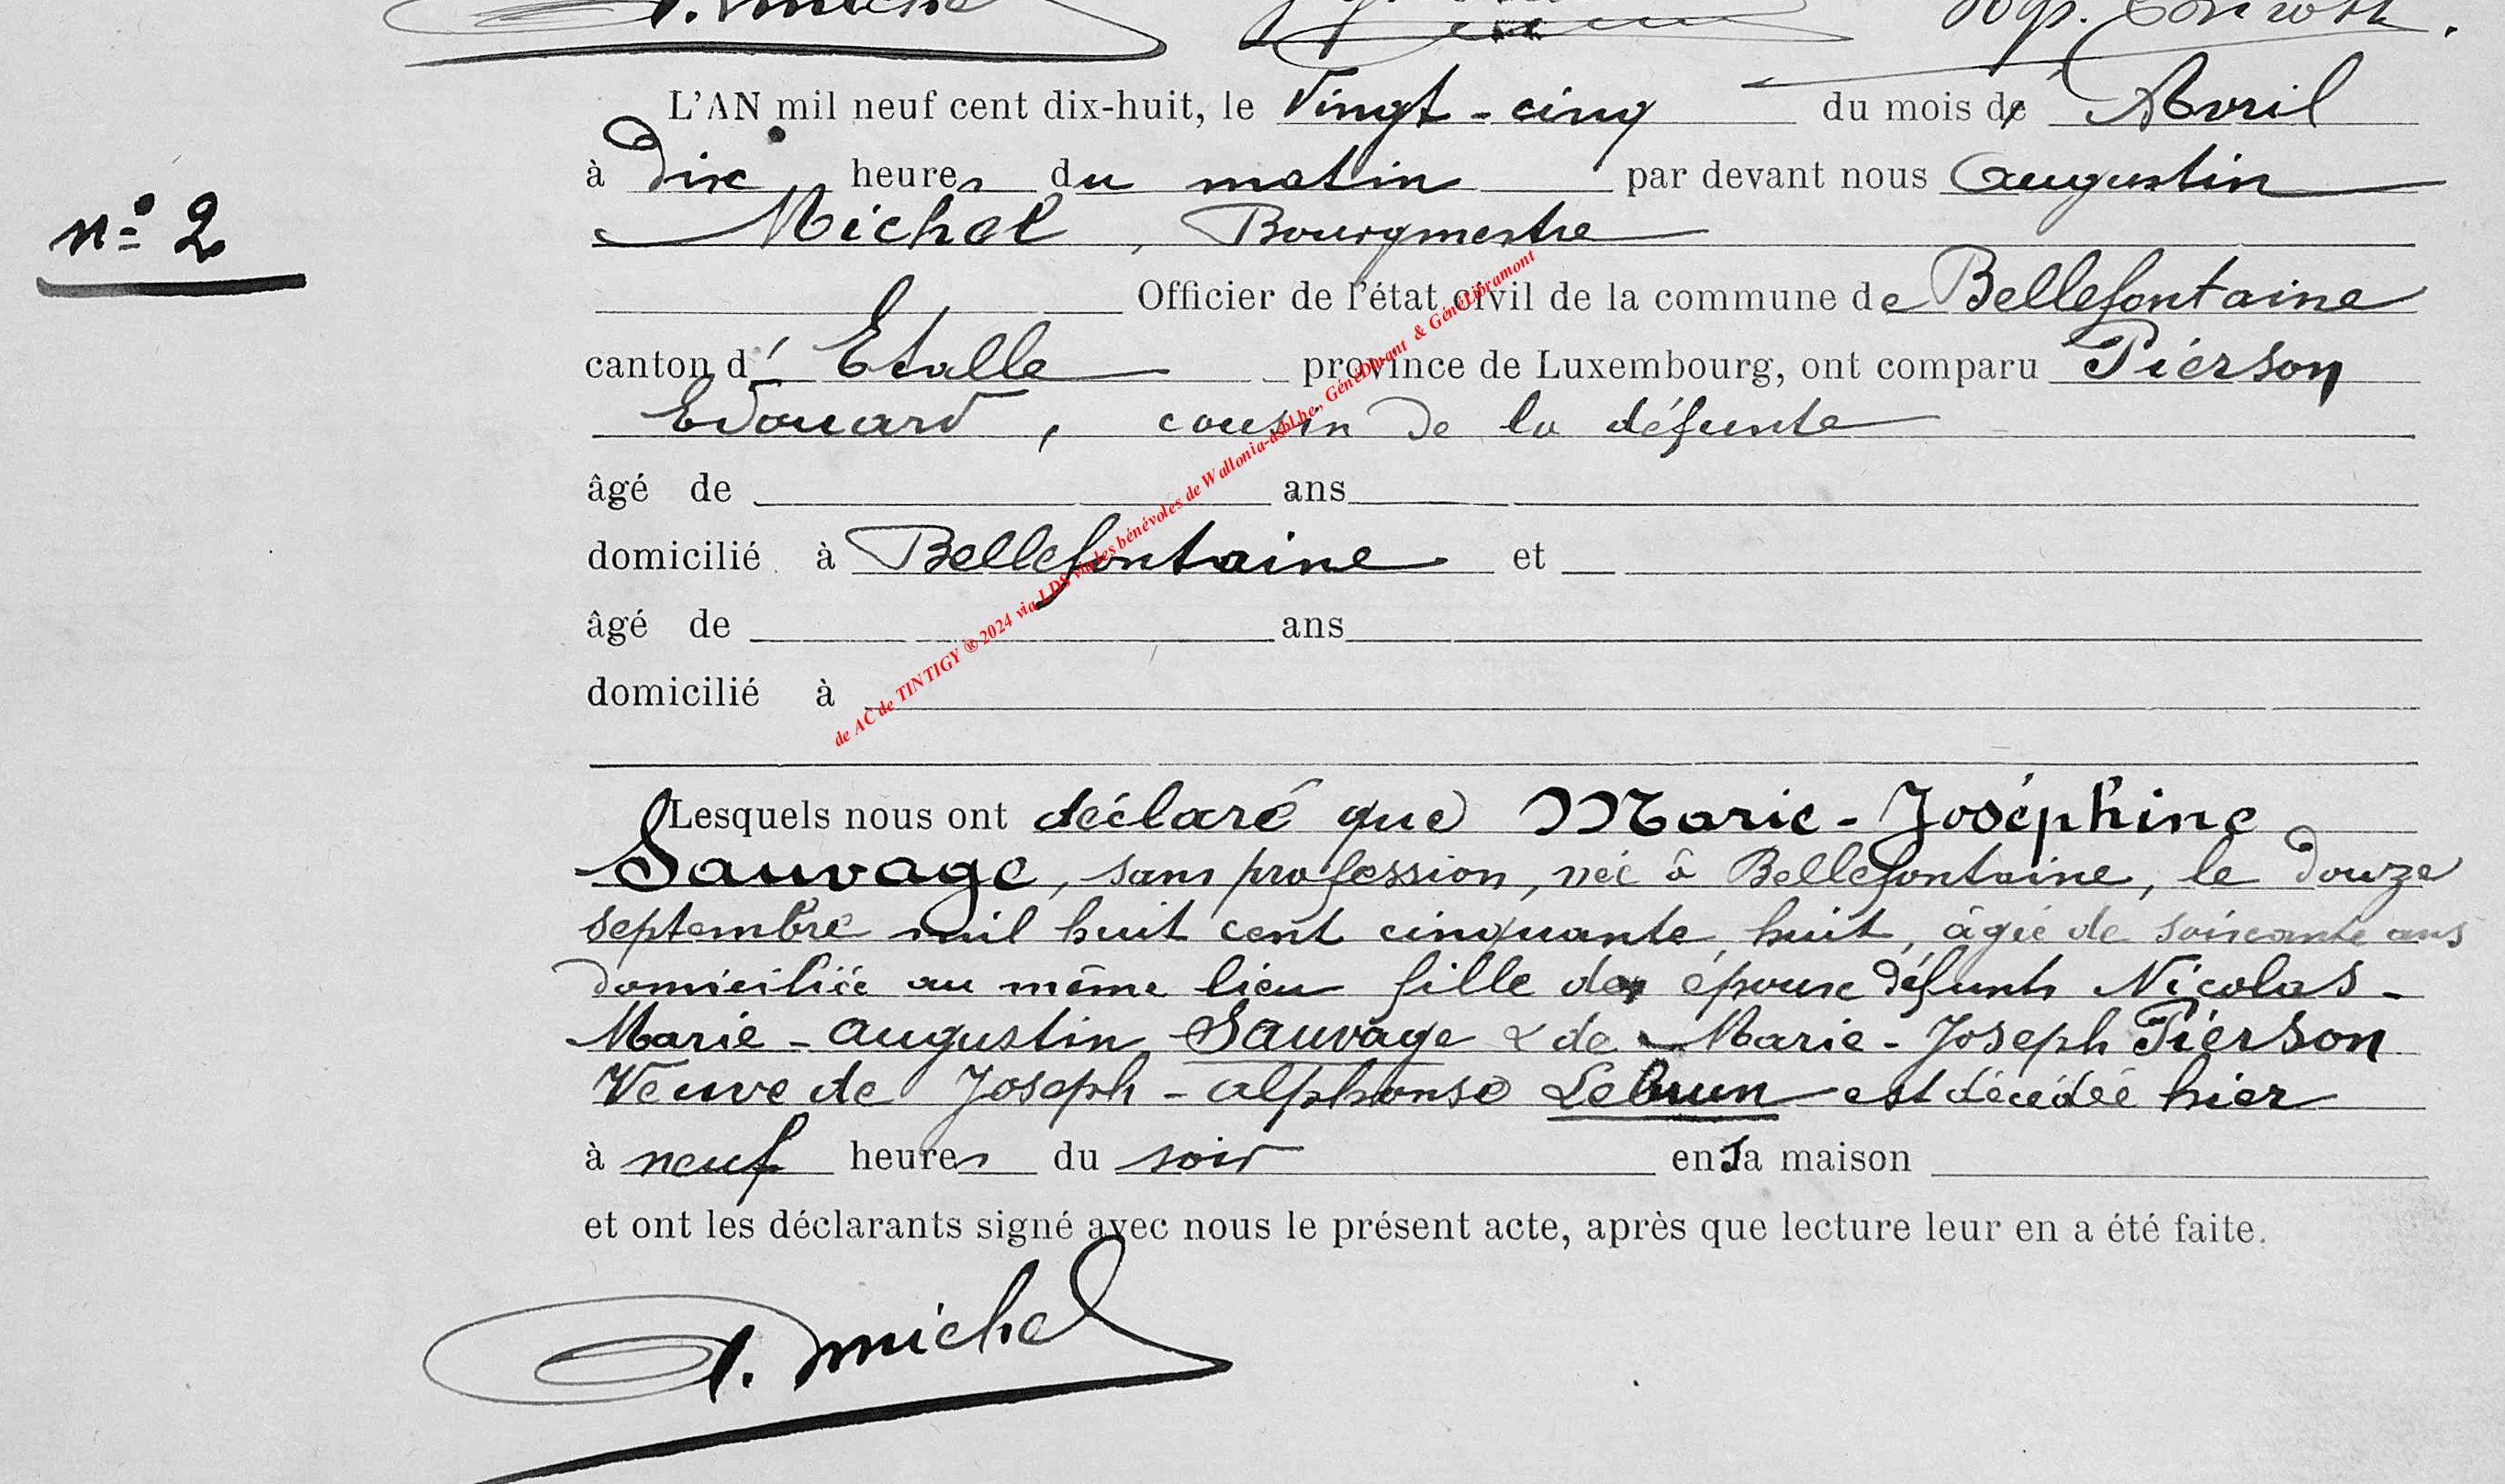 L'AN mil neuf cent dix-huit, le Vingt-cinq du mois de Avril
à dix heures du matin par devant nous Augustin
n° 2
Michel, Bourgmestre
Officier de l'état civil de la commune de Bellefontaine
canton d' Etalle province de Luxembourg, ont comparu Pierson
Edouard, cousin de la défunte
âgé de ans
domicilié à Bellefontaine et
âgé de ans
domicilié à
de AC de TINTIGY ® 2024 via LDS via les bénévoles de Wallonia-asbl.be, GénéDinant & GénéLibramont
Lesquels nous ont déclaré que Marie-Joséphine
Sauvage, sans profession, née à Bellefontaine, le douze
septembre mil huit cent cinquante huit, âgée de soixante ans
domiciliée au même lieu fille des époux défunts Nicolas-
Marie-Augustin Sauvage & de Marie-Joseph Pierson
Veuve de Joseph-Alphonse Lebrun est décédée hier
à neuf heures du soir en sa maison
et ont les déclarants signé avec nous le présent acte, après que lecture leur en a été faite.
A. Michel